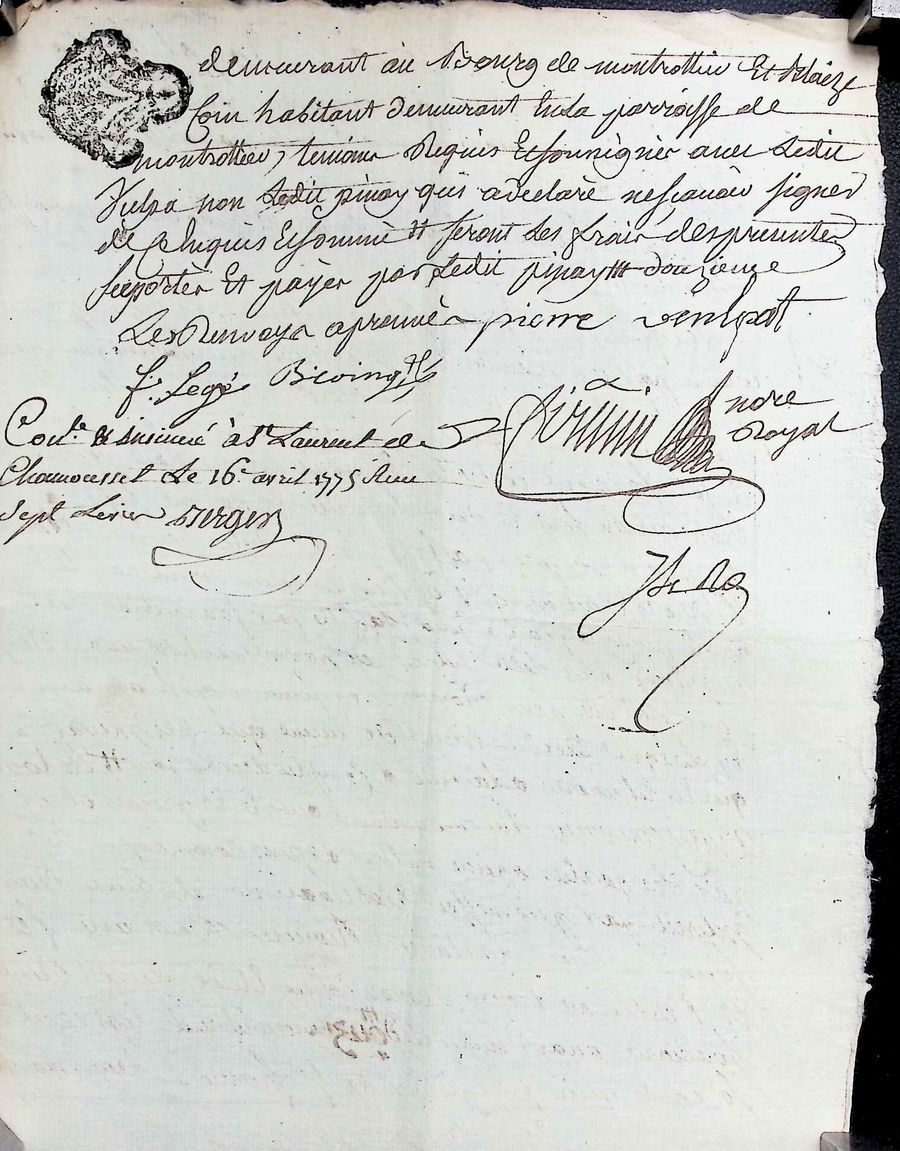 demeurant au Bourg de montrottier Et Blaize
Coin habitant demeurant Enla parroisse de
montrottier, temoins Requis Et soussignés avec Ledit
Vulpa non Ledit pinay qui adeclaré nesçavoir signer
de ce Enquis Et sommé # seront Les frais despresentes
supportés Et payer par Ledit pinay ### douzieme
Les Renvoys aprouvés pierre venlpat
f. Legé
nore
Royal
Con.le & insinué à St Laurent de
Chamousset Le 16e avril 1775
Sept Livres